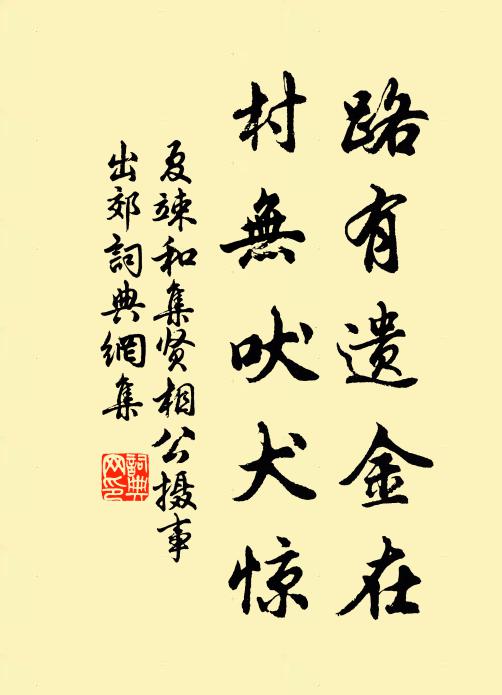 路有遗金在
村無吠犬惊
夏竦和集贤相公摄事
出郊詞典網集
詞典
网印